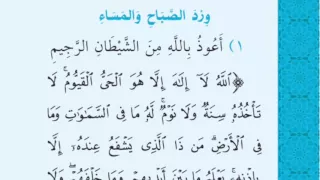 وِرْدُ الصَّبَاحِ وَالمَسَاءِ
١) أَعُوذُ بِاللَّهِ مِنَ الشَّيْطَانِ الرَّجِيمِ
﴿ٱللَّهُ لَآ إِلَـٰهَ إِلَّا هُوَ ٱلۡحَىُّ ٱلۡقَيُّومُۚ لَا
تَأۡخُذُهُۥ سِنَةٌ وَلَا نَوۡمٌۚ لَّهُۥ مَا فِى ٱلسَّمَـٰوَٰتِ وَمَا
فِى ٱلۡأَرۡضِۗ مَن ذَا ٱلَّذِى يَشۡفَعُ عِندَهُۥٓ إِلَّا
بِإِذۡنِهِۦۚ يَعۡلَمُ مَا بَيۡنَ أَيۡدِيهِمۡ وَمَا خَلۡفَهُمۡۖ وَلَا